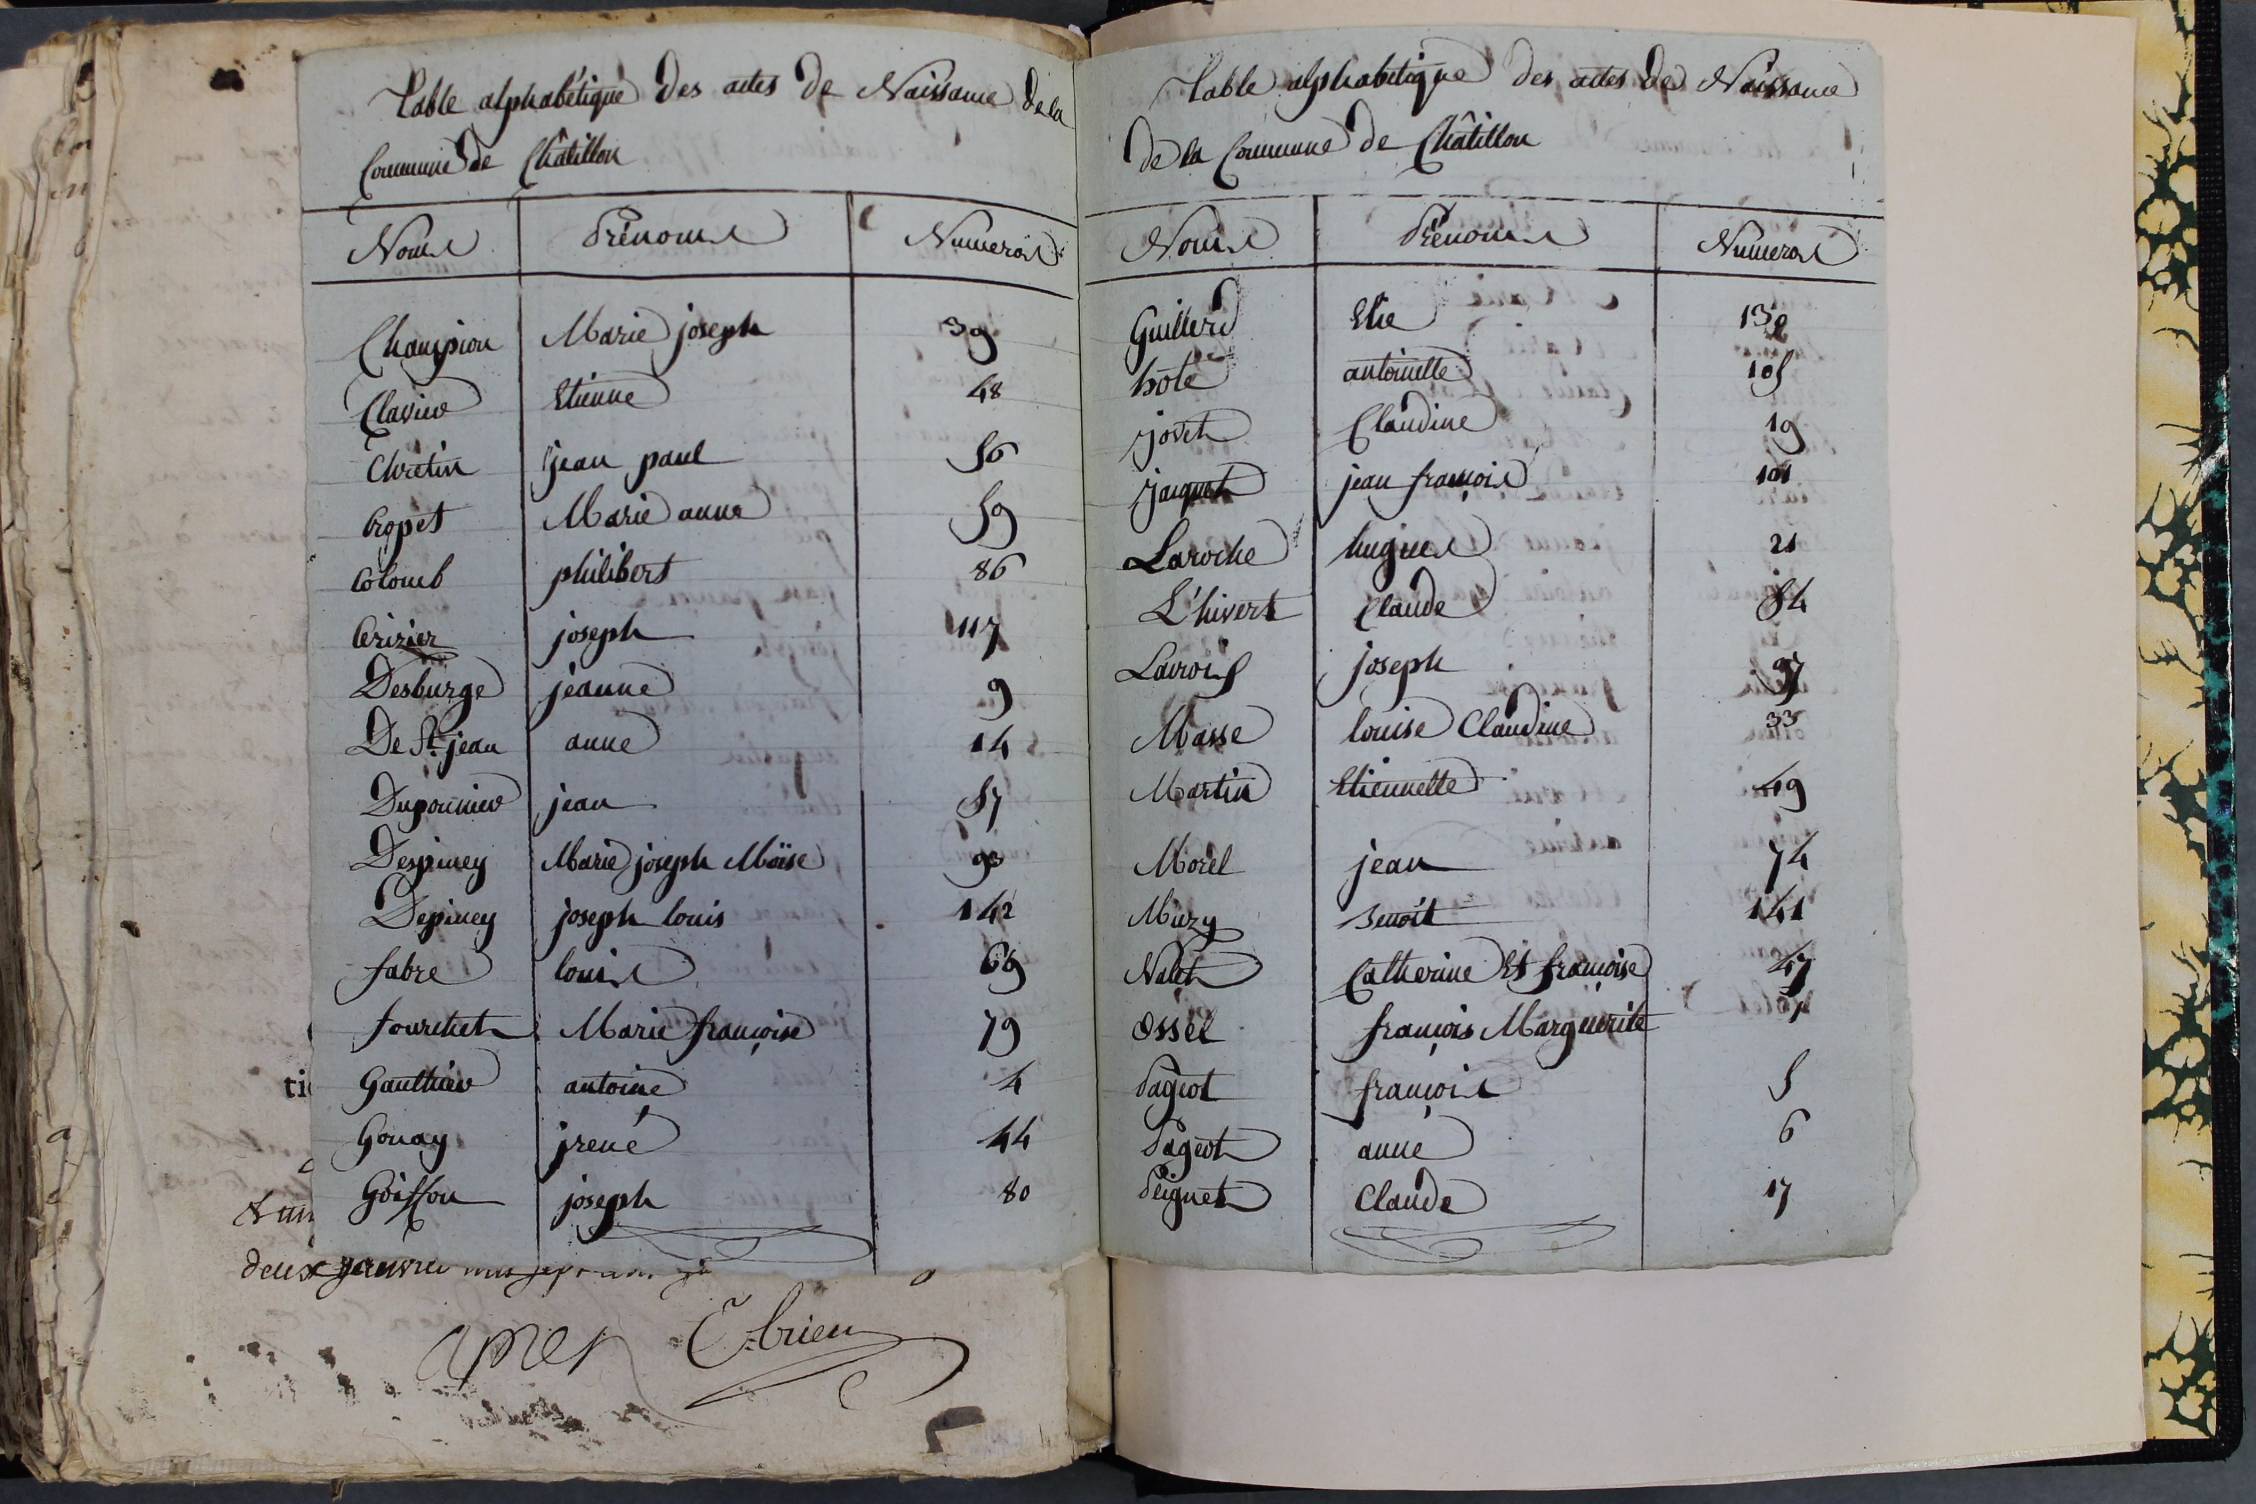 Table alphabétique des actes de Naissance de la
Commune de Châtillon
Noms Prénoms Numeros
Champion Marie joseph 39
Clavier Etienne 48
Chretin jean paul 56
Cropet Marie anne 59
Colomb philibert 86
Cerizier joseph 117
Desburge jeanne 9
De St. jean anne 14
Duponnier jean 57
Despiney Marie joseph Moïse 93
Depiney joseph louis 142
fabre louis 69
fourchet Marie françoise 79
Gauthier antoine 4
Gouay jrené 44
Goiffon joseph 80
deux janvier mil sept
Ebrien
Table alphabétique des actes de Naissance
de la Commune de Châtillon
Noms Prénoms Numeros
Guillerd Elie 139
hote antoinette 105
jovet Claudine 19
jacquet jean françois 101
Laroche hugues 21
L'hivert Claude 54
Lavoit joseph 97
Masse louise Claudine 33
Martin Etiennette 49
Morel jean 74
Muzy Benoit 141
Nalet Catherine Et françoise 47
Ossel françois Marguerite 1
Pageot françois 5
Pageot anne 6
Peignet Claude 17